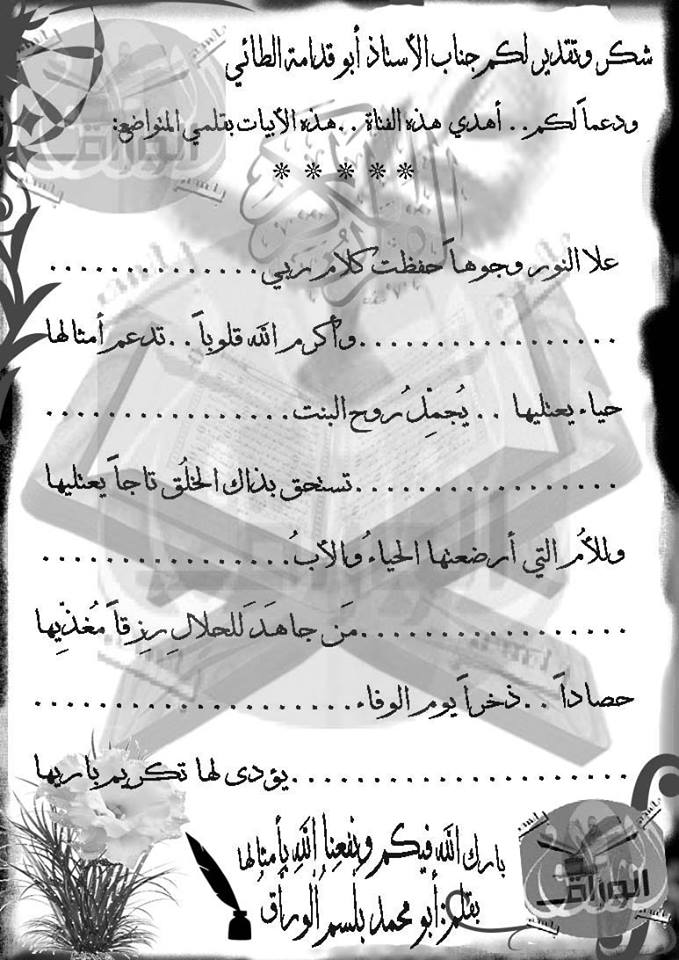 شكر وتقدير لكم جناب الأستاذ أبو قدامة الطائي
ودعماً لكم.. أهدي هذه الفتاة ..هذه الأبيات بقلمي المتواضع:
* * * * *
علا النور وجوهاً حفظت كلام ربي..............
..................وأكرم الله قلوباً..تدعم أمثالها
حياء يعتليها ..يُجمِّل رُوح البنت................
..................تستحق بذاك الخلُق تاجاً يعتليها
وللأُم التي أرضعتها الحياءُ والأبُ................
..................مَن جاهَدَ للحلالِ رِزقاً مُغذِّيها
حصاداً ..ذخراً يوم الوفاء......................
.......................يؤدى لها تكريم باريها
بارك الله فيكم وينفعنا الله بأمثالها
بقلم:أبو محمد بلسم الوراق
الوراق
بلسم